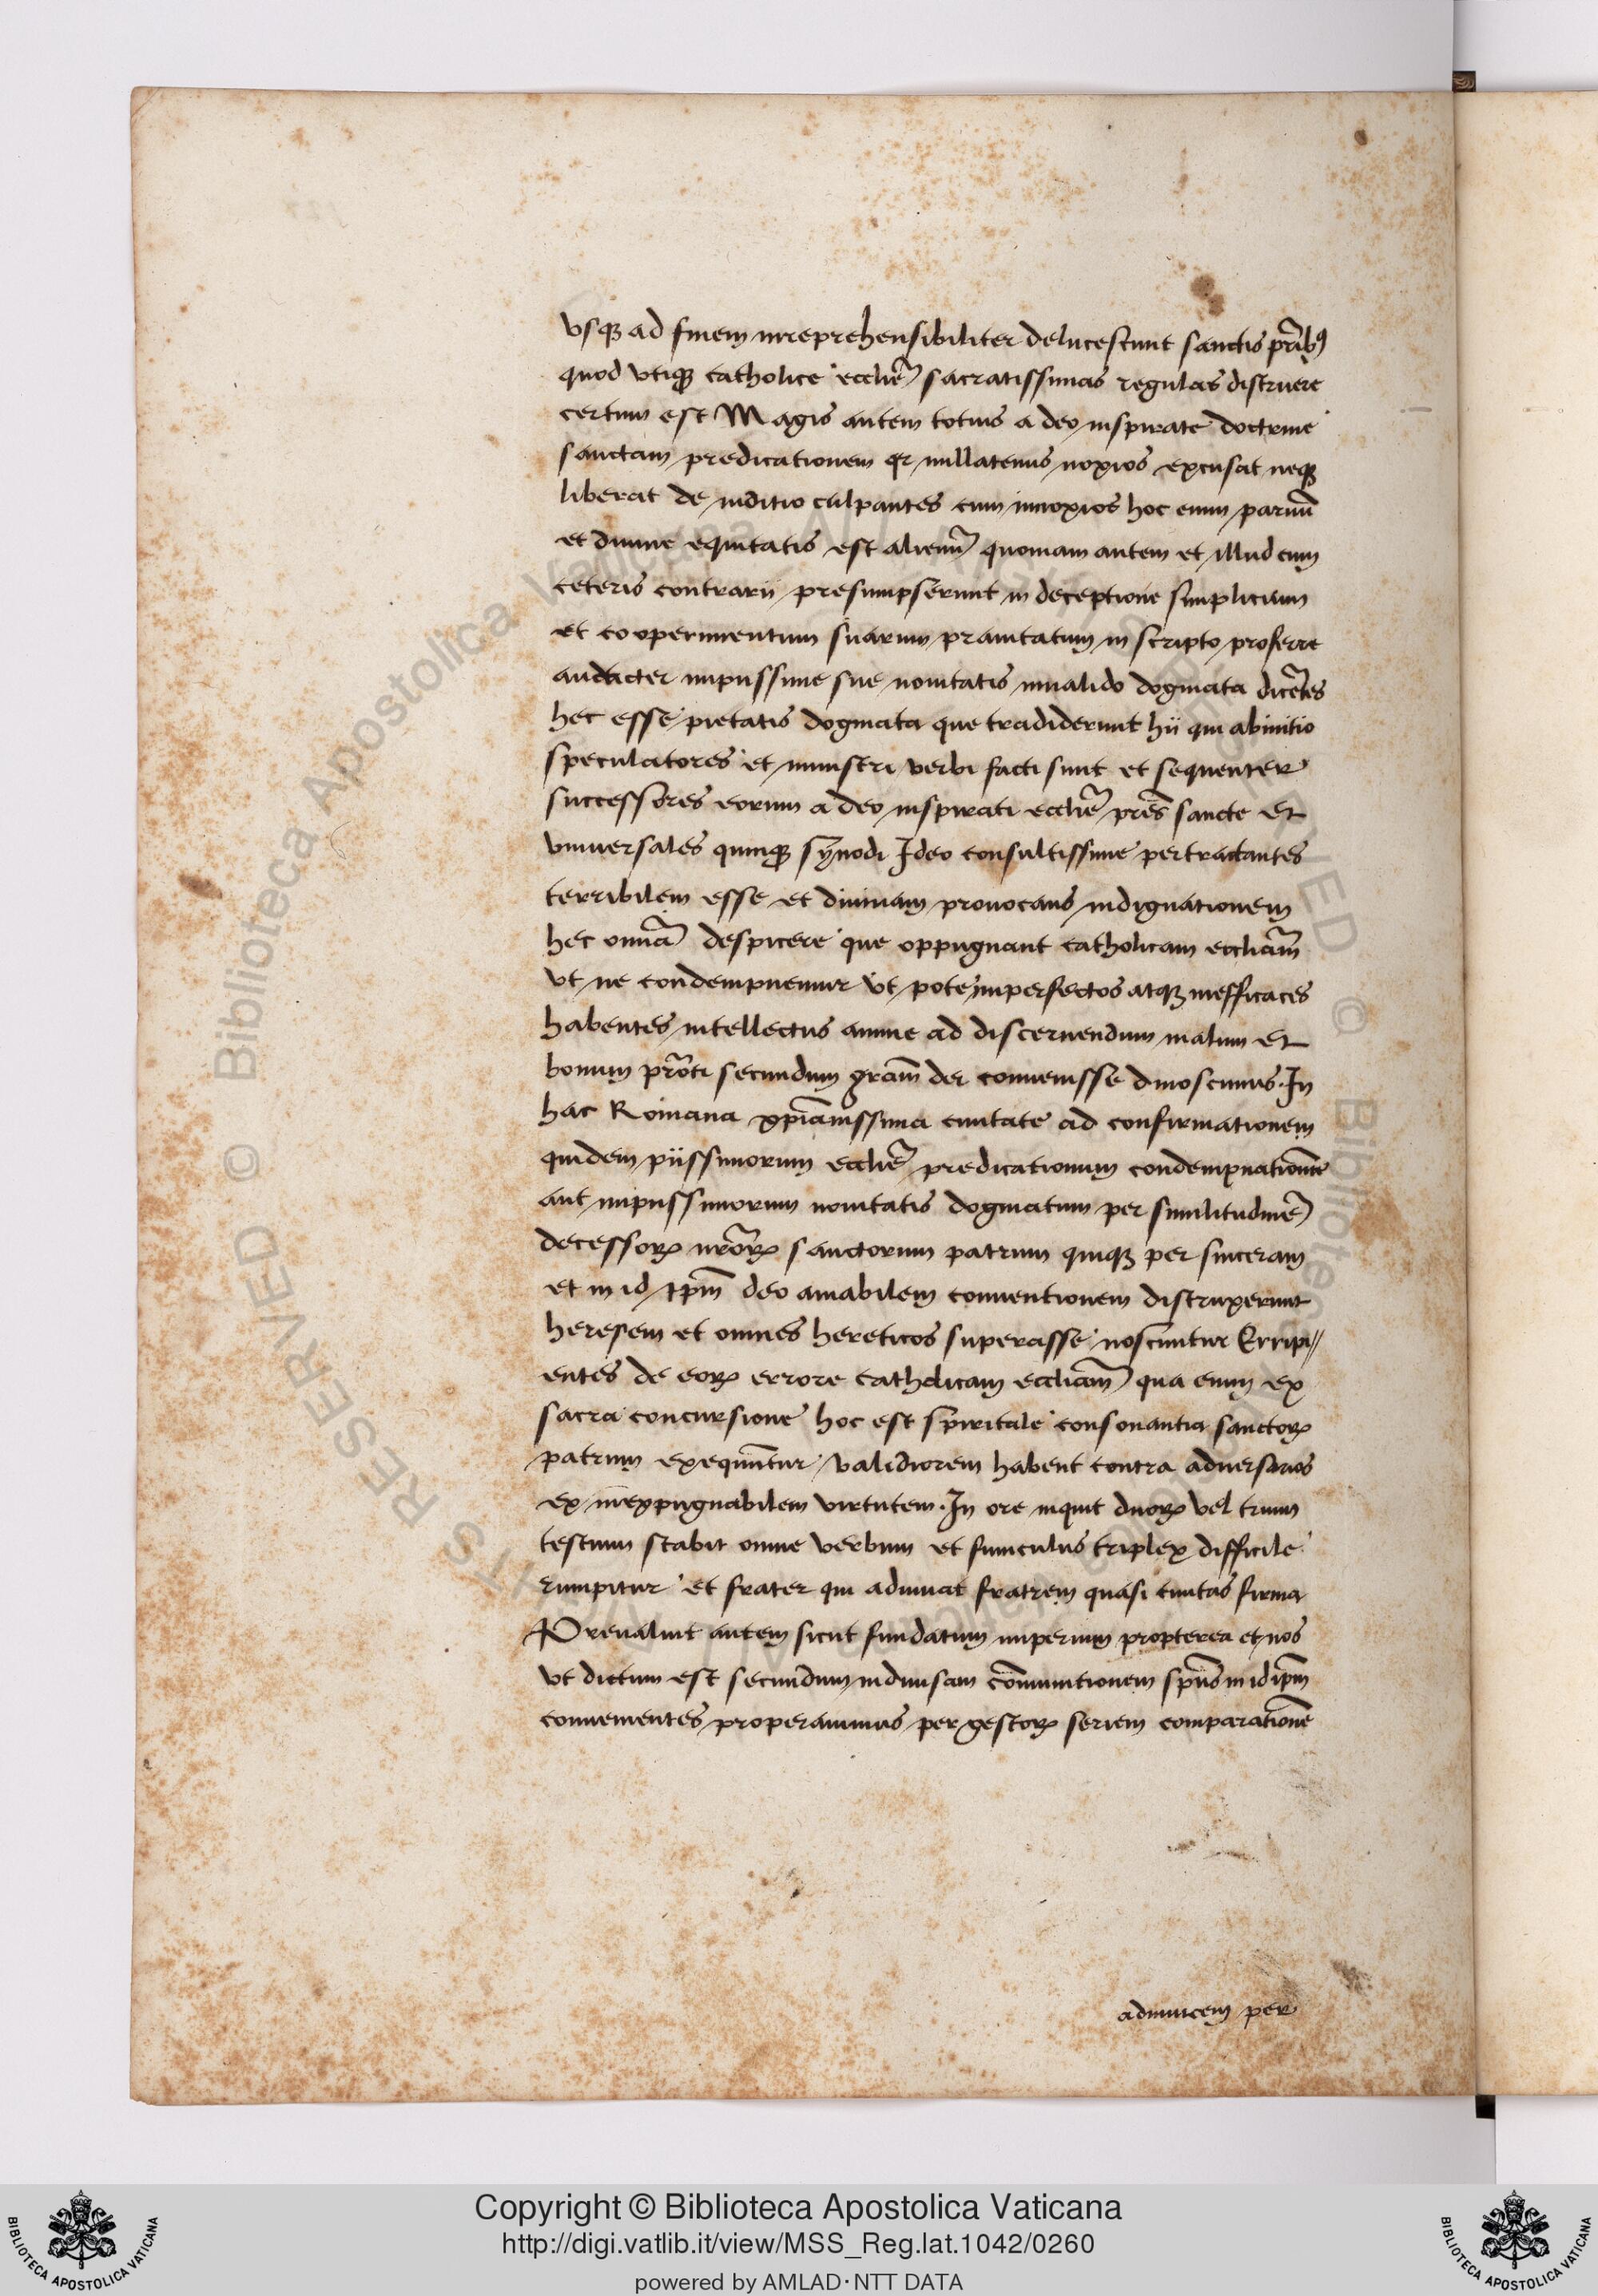 vsqꝫ ad finem irreprehensibiliter delucescunt sanctis pr̃ibꝰ
quod vtiqꝫ catholice eccliẽ sacratissimas regulas distruere
certum est Magis autem totius a deo inspirate doctrine
sanctam predicationem qr nullatenus noxios excusat neqꝫ
liberat de inditio culpantes cum innoxios hoc enim paruũ
et diuine equitatis est alienũ quoniam autem et illud cum
ceteris contrarii presumpserunt in deceptione simplicium
et cooperimentum suarum prauitatum in scripto proferre
audacter impiissime sue nouitatis inualido dogmata dicẽtes
hec esse pietatis dogmata que tradiderunt hii qui abinitio
speculatores et ministri verbi facti sunt et sequenter
successores eorum a deo inspirati eccliẽ pr̃es sancte et
vniuersales quinqꝫ synodi Ideo consultissime pertractantes
terribilem esse et diuinam prouocans indignationem
hec omĩa despicere que oppugnant catholicam eccliam̃
vt ne condempnemur vt pote imperfectos atqꝫ inefficaces
habentes intellectus anime ad discernendum malum et
bonum pr̃oti secundum gram̃ dei conuenisse dinoscimus. In
hac Romana xp̃ianissima ciuitate ad confirmationem
quidem piissimorum eccliẽ predicationum condempnationem̃
aut impiissimorum nouitatis dogmatum per similitudinẽ
decessorꝝ nr̃orꝝ sanctorum patrum quiqꝫ per sinceram
et in id ip̃m deo amabilem conuentionem distruxerunt
heresem et omnes hereticos superasse noscuntur Erripi//
entes de eorꝝ errore catholicam eccliam̃ qua enim ex
sacra concursione hoc est spiritale consonantia sanctorꝝ
patrum exequũtur validiorem habent contra aduersarios
ex inexpugnabilem virtutem. In ore inquit duorꝝ vel trium
testium stabit omne verbum et funiculus triplex difficile
rumpitur et frater qui adiuuat fratrem quasi ciuitas firma
Preualuit autem sicut fundatum imperium propterea et nos
vt dictum est secundum indiuisam cõmunitionem sp̃us in idip̃m
conuenientes properauimus per gestorꝝ seriem comparationẽ
adinuicem per
Copyright © Biblioteca Apostolica Vaticana
http://digi.vatlib.it/view/MSS_Reg.lat.1042/0260
powered by AMLAD·NTT DATA